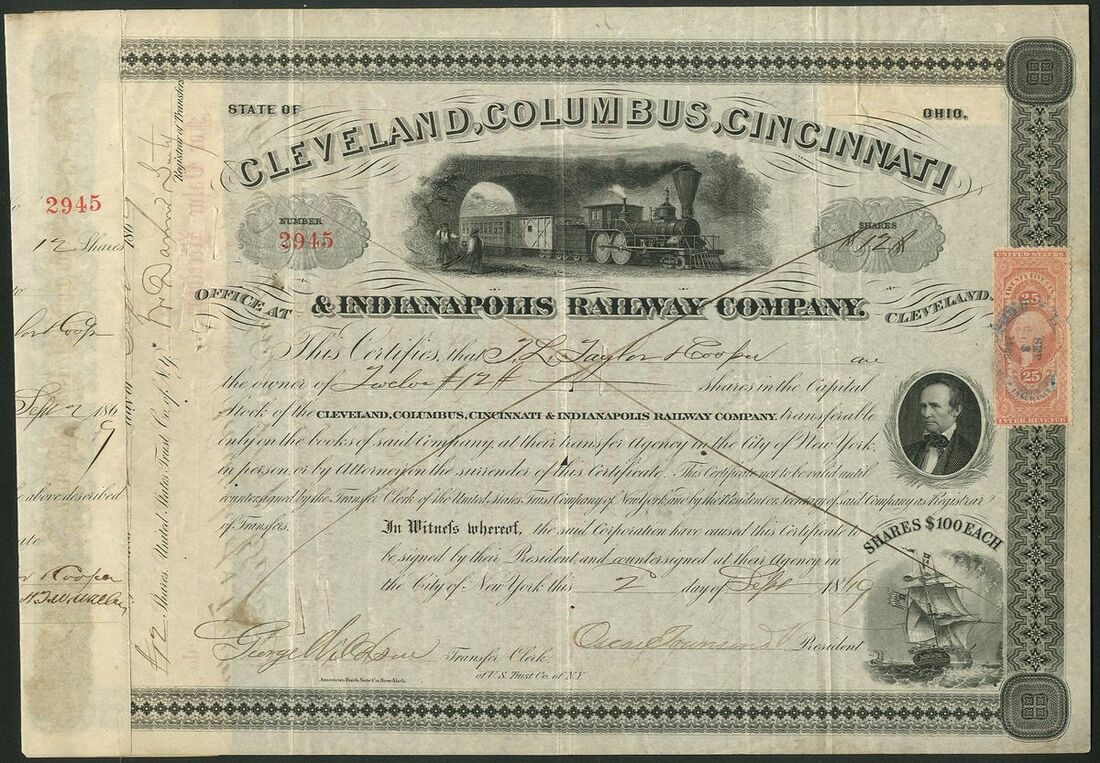 STATE OF
OHIO.
CLEVELAND, COLUMBUS, CINCINNATI
NUMBER
2945
SHARES
#12#
OFFICE AT
& INDIANAPOLIS RAILWAY COMPANY.
CLEVELAND.
This Certifies, that T. L. Taylor & Cooper are
the owner of Twelve #12# Shares in the Capital
Stock of the CLEVELAND, COLUMBUS, CINCINNATI & INDIANAPOLIS RAILWAY COMPANY, transferable
only on the books of said Company, at their transfer Agency in the City of New York,
in person, or by Attorney on the surrender of this Certificate. This Certificate not to be valid until
countersigned by the Transfer Clerk of the United States Trust Company of New York, and by the President or Secretary of said Company as Registrar
of Transfers.
In Witness whereof, the said Corporation have caused this Certificate to
be signed by their President and countersigned at their Agency in
the City of New York this 2 day of Sept 1869
Transfer Clerk.
of U.S. Trust Co. of N.Y.
President
American Bank Note Co. New-York.
SHARES $100 EACH
UNITED STATES
25
25
INSURANCE
INTER. REVENUE
SEP
2945
12 Shares
Cooper
Sept 2 1869
above described
Cooper
Registrar of Transfers
#12 Shares. United States Trust Co. of N.Y.